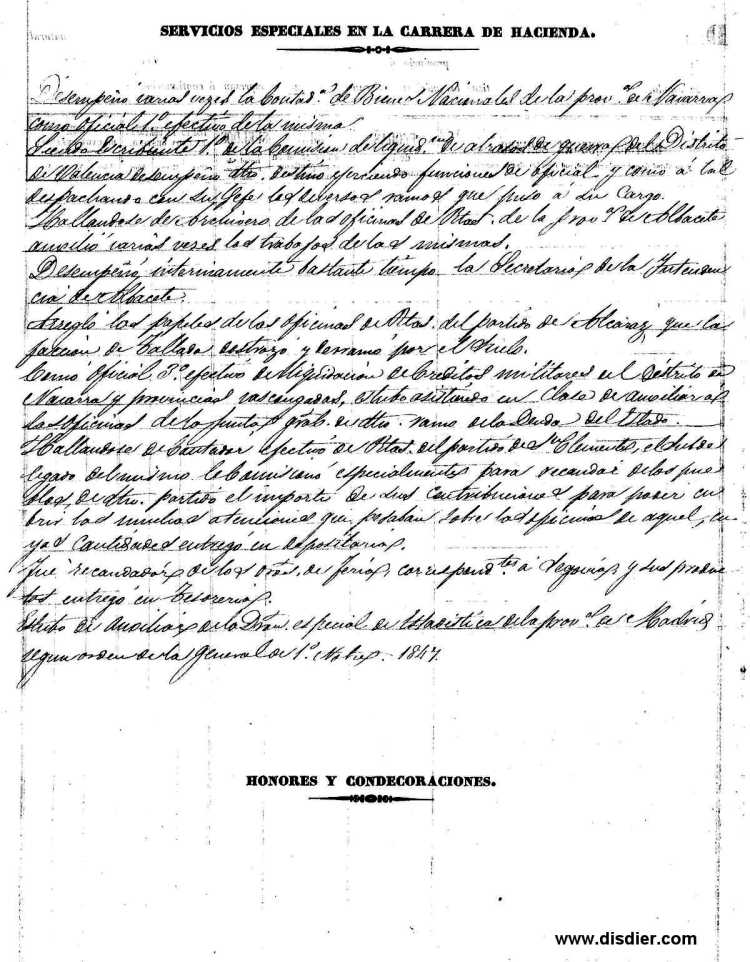 SERVICIOS ESPECIALES EN LA CARRERA DE HACIENDA.
Desempeñó varias vezes la Contad.ª de Bienes Nacionales de la prov.ª de Navarra
como oficial 1.º efectivo de la misma.
Siendo Escribiente 1.º de la Comision de liquid.on de atrasos de guerra del Distrito
de Valencia desempeñó dho. destino ejerciendo funciones de oficial y como á tal
despachando con su Gefe los diversos ramos que puso á su cargo.
Hallandose de Archivero de las oficinas de Rtas. de la prov.ª de Albacete
auxilió varias vezes los trabajos de las mismas.
Desempeñó interinamente bastante tiempo la Secretaria de la Intenden
cia de Albacete.
Arregló los papeles de las oficinas de Rtas. del partido de Alcaraz que la
faccion de Tallada destrozó y derramó por el suelo.
Como oficial 3.º efectivo de liquidacion de Creditos militares del Distrito de
Navarra y provincias vascongadas, estubo asistiendo en clase de auxiliar á
las oficinas de la junta, gral. de dho. ramo de la Deuda del Estado.
Hallandose de Contador efectivo de Rtas. del partido de Sn. Clemente, el Subde
legado del mismo le comisionó especialmente para recaudar de los pue
blos de dho. partido el importe de sus contribuciones para poder cu
brir las muchas atenciones que pesaban sobre las oficinas de aquel, cu
yas cantidades entregó en depositaria.
Fué recaudador de los dros. de feria, correspond.tes á y sus produc
tos entregó en tesoreria.
Estubo de auxiliar de la Dión especial de Estadistica de la prov.ª de Madrid
segun orden de la general de 1.º Nobre. 1847.
HONORES Y CONDECORACIONES.
www.disdier.com